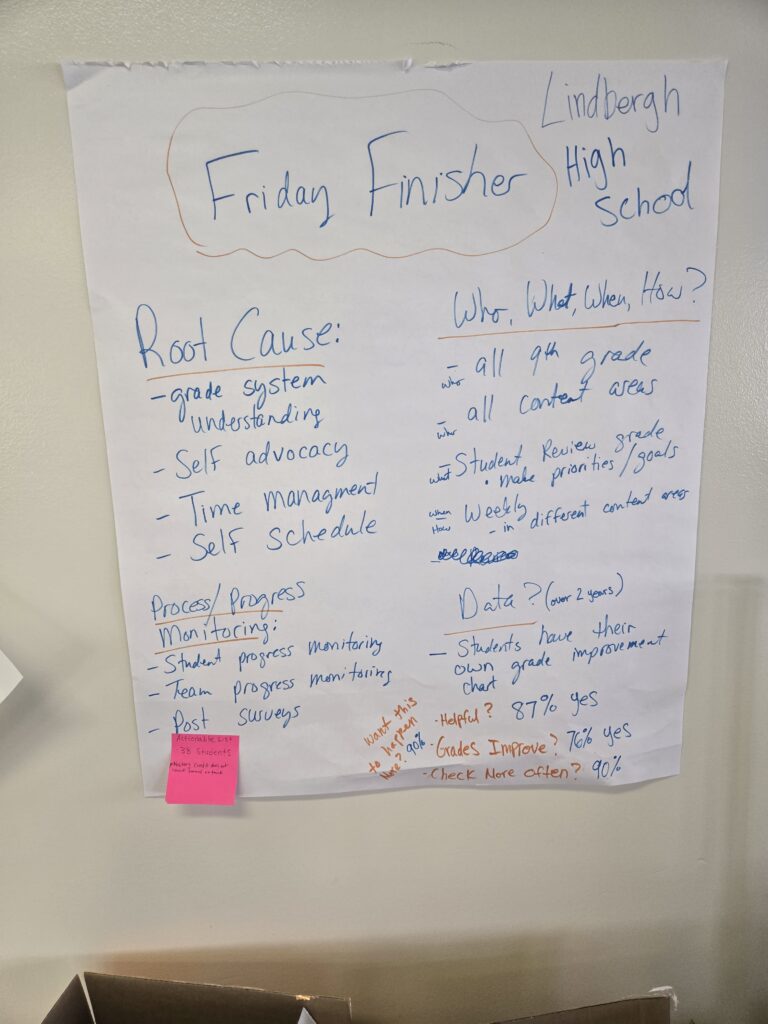 Friday Finisher
Lindbergh
High
School
Root Cause:
- grade system
understanding
- Self advocacy
- Time managment
- Self schedule
Process/Progress
Monitoring:
- Student progress monitoring
- Team progress monitoring
- Post surveys
Actionable List
38 Students
Who, What, When, How?
- who all 9th grade
- who all content areas
- what Student Review grade
• make priorities/goals
when
How
- Weekly
- in different content areas
Data? (over 2 years)
- Students have their
own grade improvement
chart
Want this
to happen
More? 90%
- Helpful? 87% yes
- Grades Improve? 76% yes
- Check More often? 90%